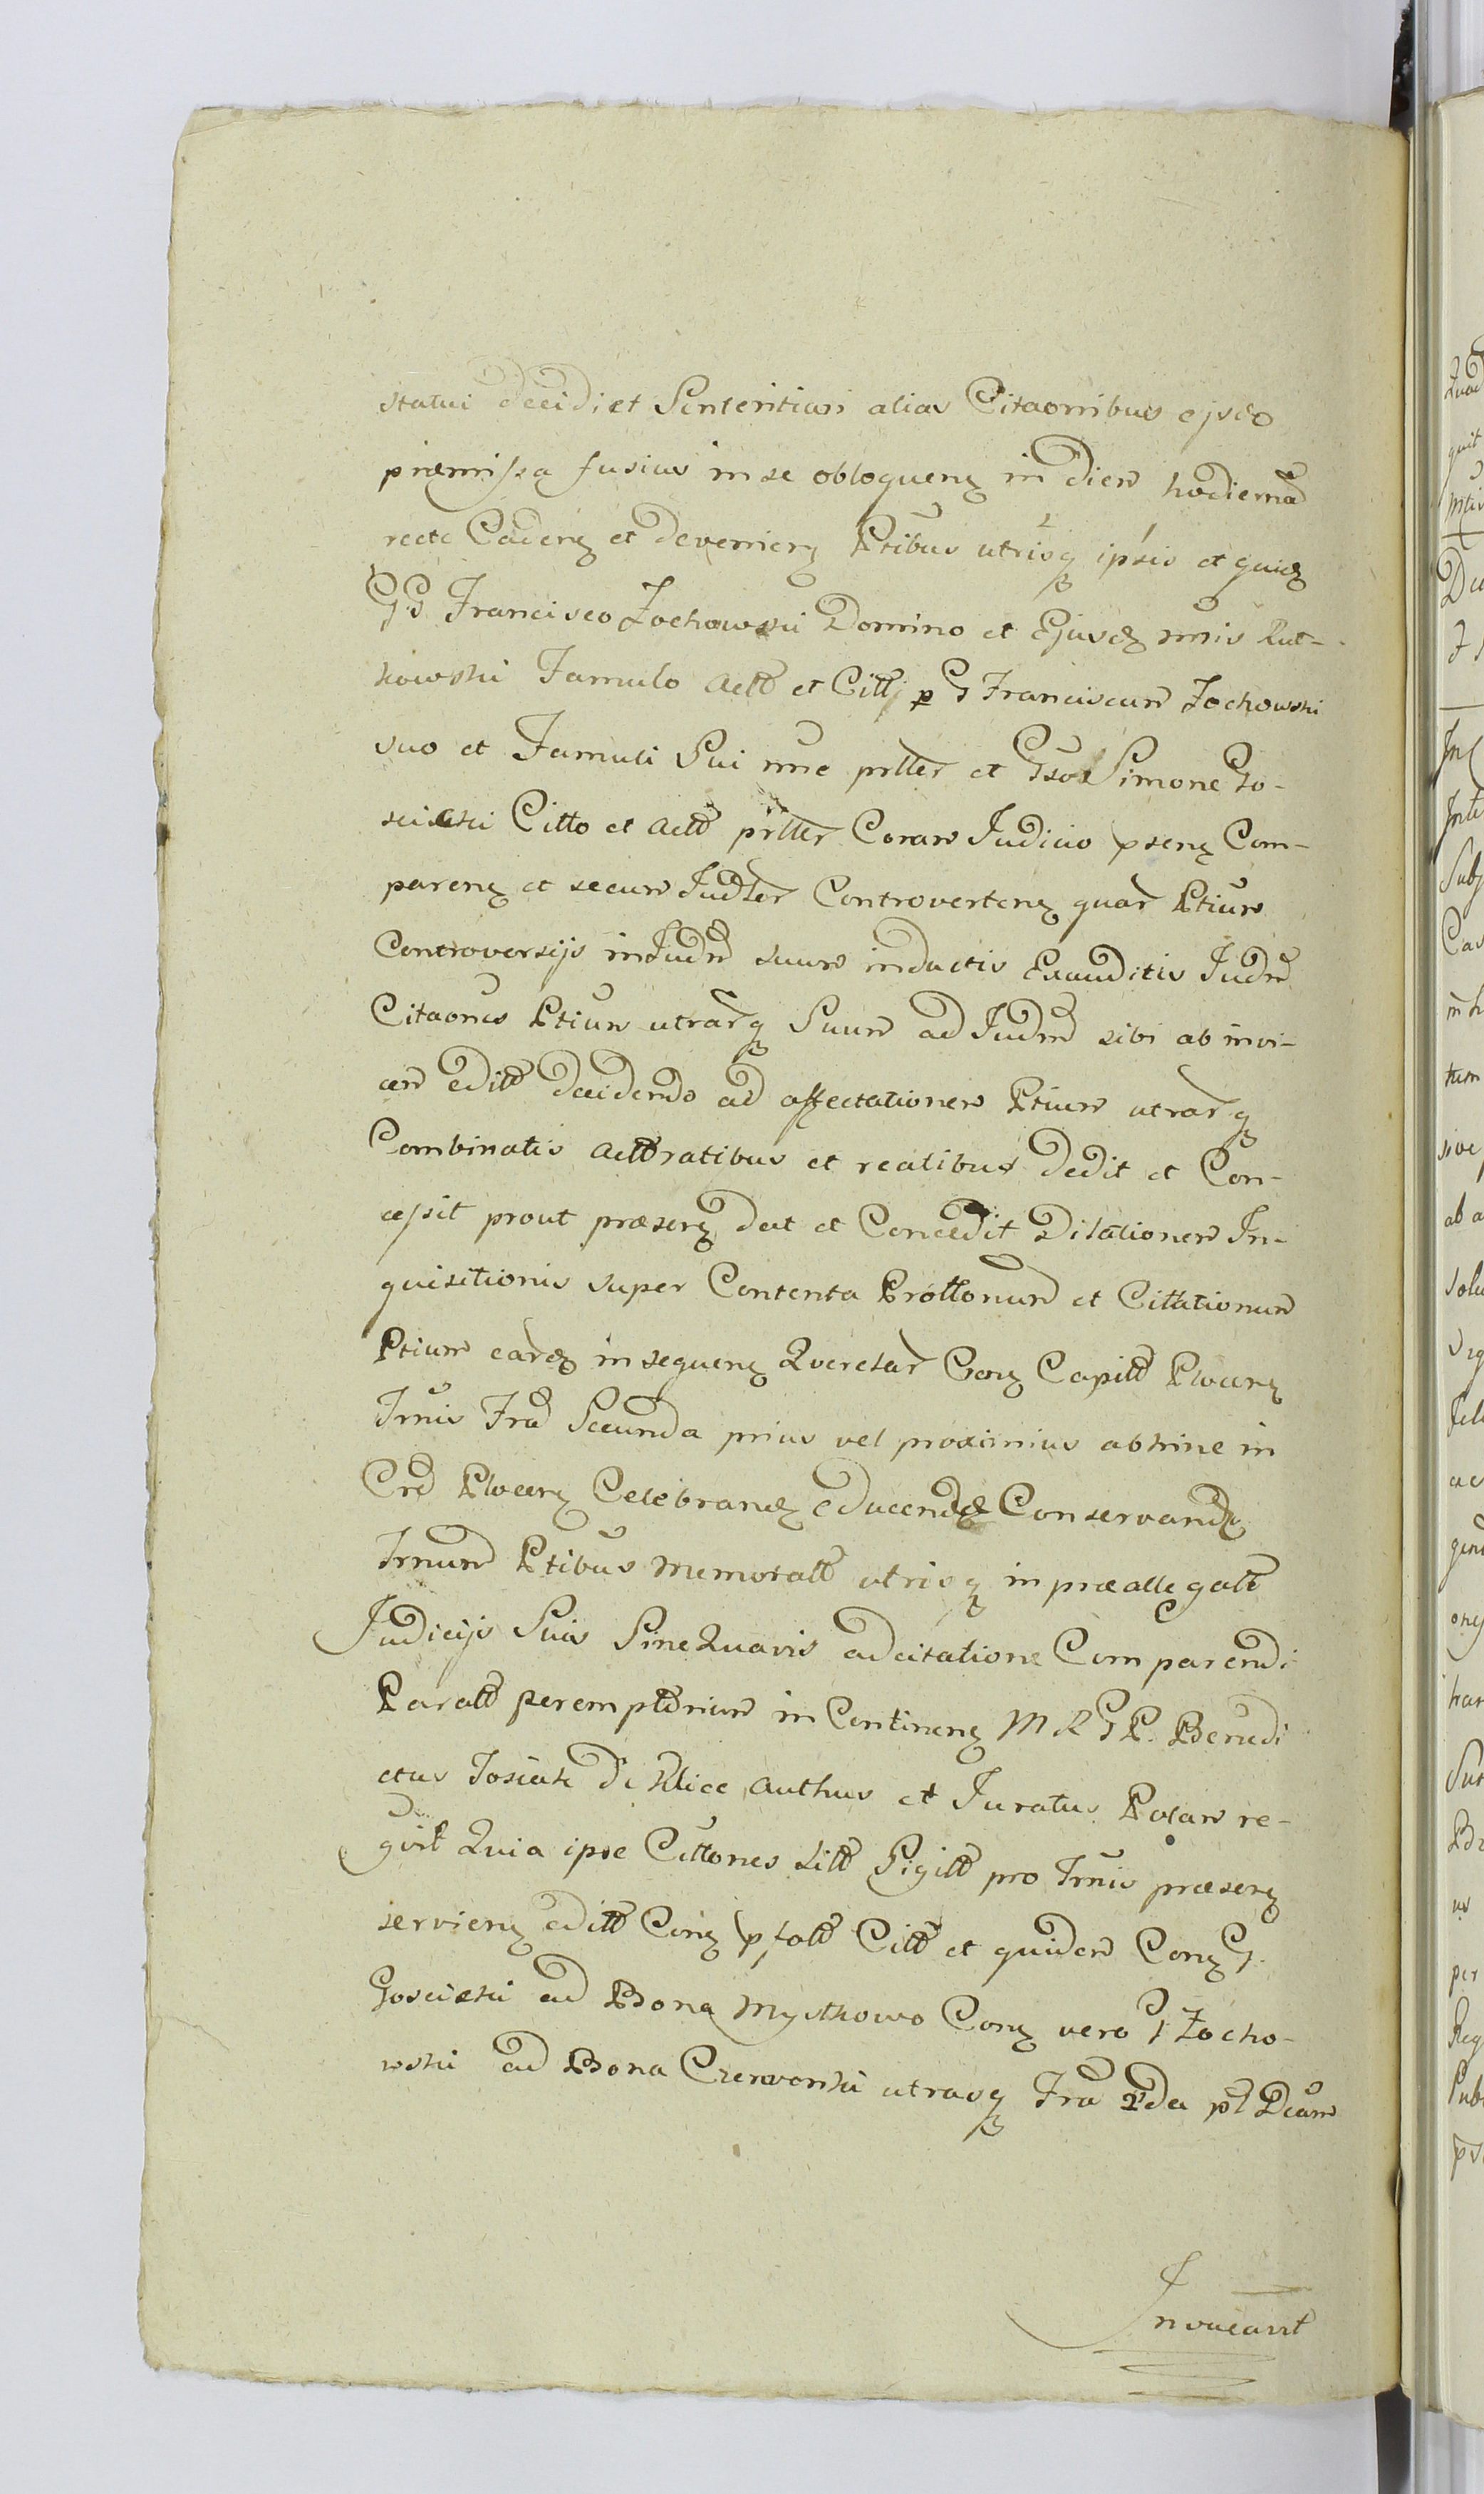 statui decidi et Sententiari alias Citaonibus ejsd
præmissa fusius in se obloquenz in diem hodierna
recte Cadenz et devenienz Ptibus utrisq ipsis et quidz
GG Francisco Zochowski Domino et Ejusdz mnis Rut-
kowski Famulo actt et Citt p G Franciscum Zochowski
suo et Famuli Sui nne prtter et Gso Simone Go-
sciski Citto et actt prtter Coram Judicio psenz Com-
parenz et secum Judlter Controvertenz quar Ptium
Controversijs in Judm suum inductis Exauditis Judm
Citaones Ptium utrarq Suum ad Judm sibi ab invi-
cem editt decidendo ad affectationem Ptium utrarq
Combinatis acttoratibus et reatibus dedit et Con-
cessit prout præsenz dat et Concedit Dilationem In-
quisitionis super Contenta Prottonum et Cittationum
Ptium eardz in sequenz Querelar Conz Capitt Plocenz
Trnis Fra Secunda prius vel proximius abhinc in
Crd Plocenz Celebrandz educendz Conservandz
Trnum Ptibus memoratt utrisq in præallegatt
Judicijs Suis Sine Quavis adcitatione Comparendi
Paratt peremptorium in Continenz M R G P. Benedi
ctus Josiak De Klice Authus et Juratus Polam re-
gvit Quia ipse Cittones Litt Sigitt pro Trnis præsenz
servienz editt Conz psott Citt et quidem Conz G.
Gosciski ad Bona Mystkowo Conz vero G Zocho-
wski ad Bona Czerwonki utrasq Fra 2da pt Dcam
Invocavit